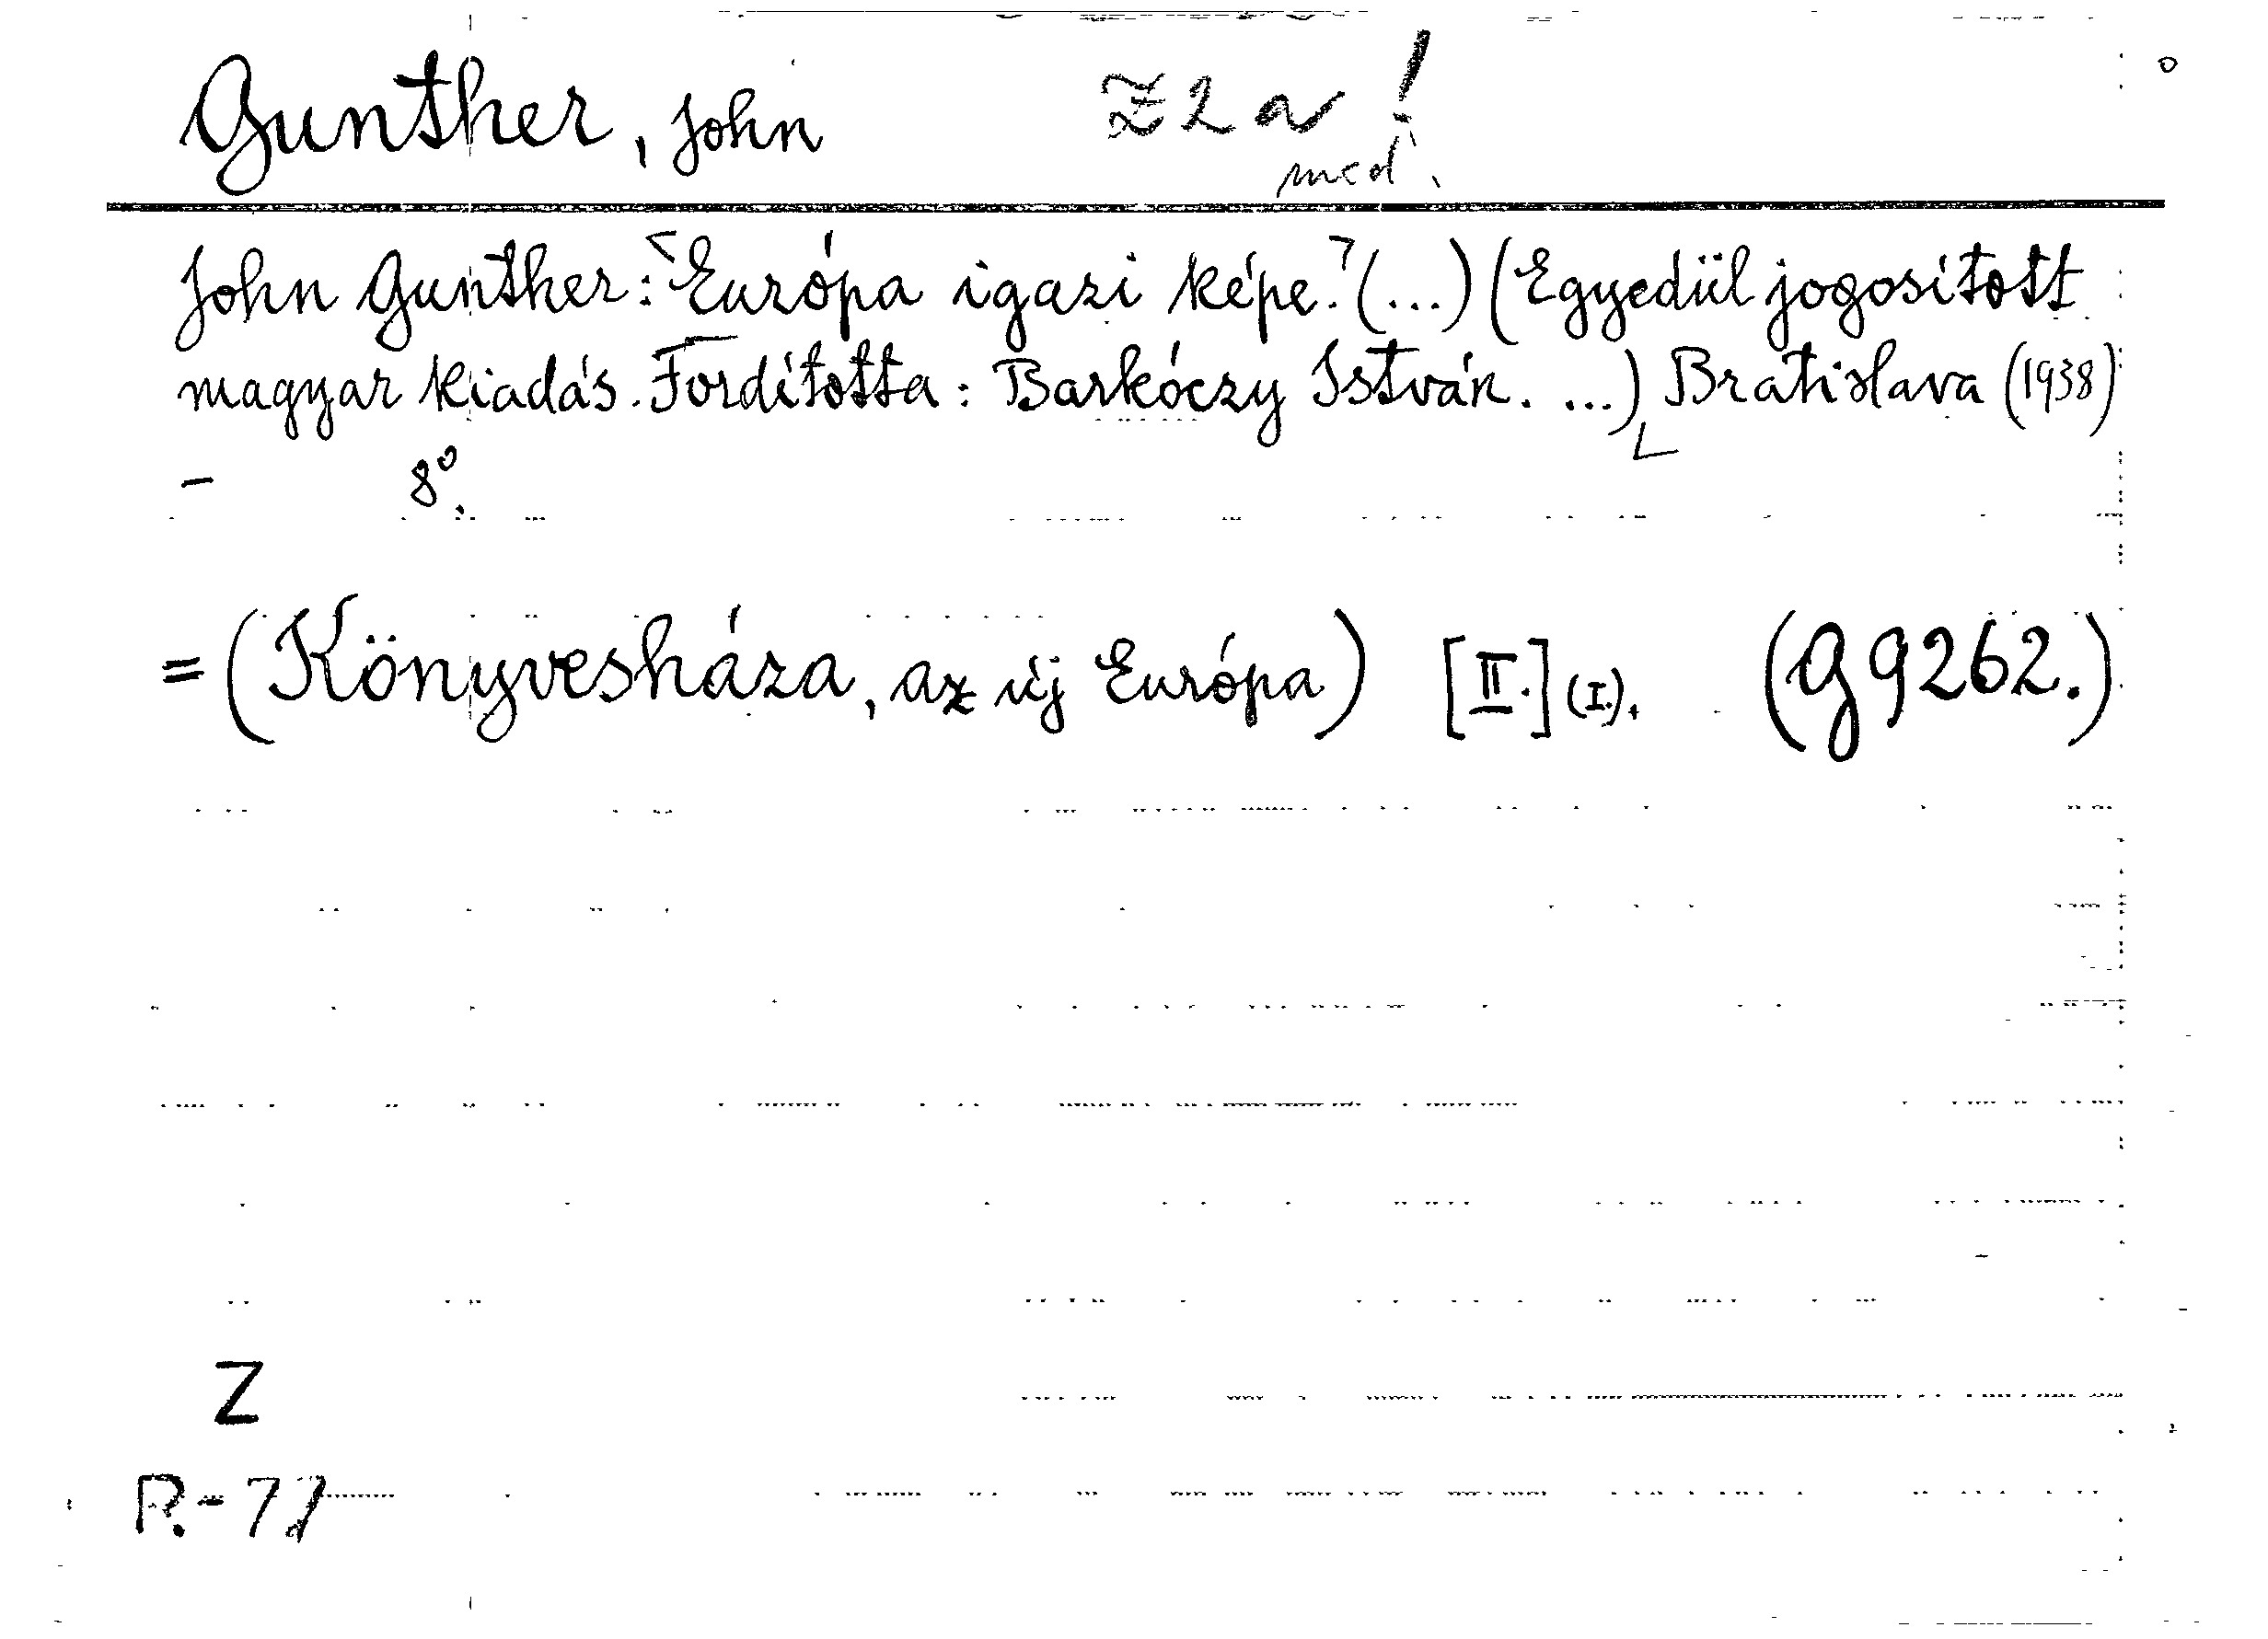 Gunther, John Z2a!
med.
John Gunther: Európa igazi képe. (...) (Egyedül jogosított
magyar kiadás. Fordította: Barkóczy István. ...) Bratislava (1938)
– 8°.
= (Könyvesháza, az új Európa) [II.] (I.). (G 9262.)
Z
R.-77